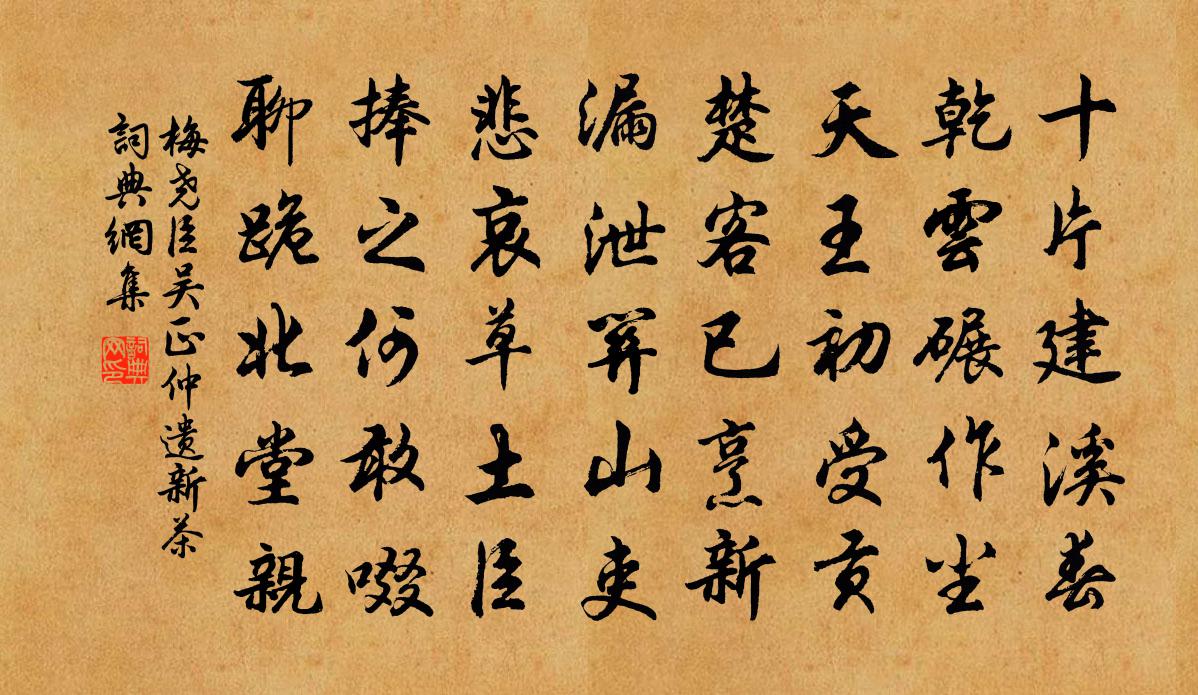 十片建溪春
乾雲碾作尘
天王初受贡
楚客已烹新
漏泄關山吏
悲哀草土臣
捧之何敢啜
聊跪北堂親
梅尧臣吴正仲遗新茶
詞典網集
詞典网印